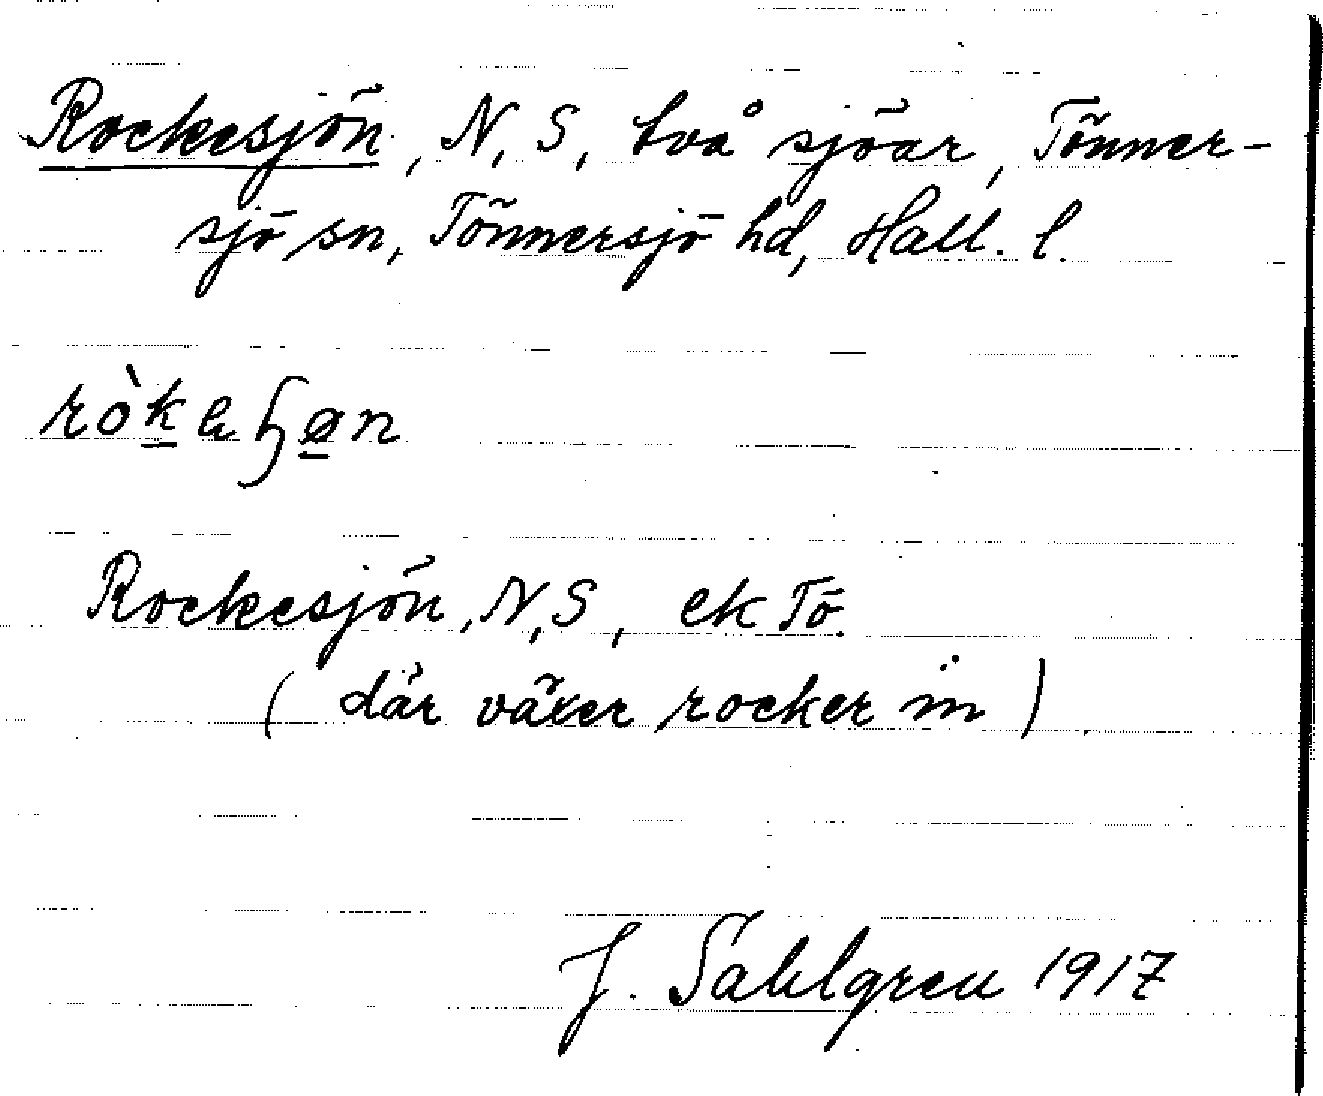 Rockesjön, N, S, två sjöar, Tönner-
sjö sn, Tönnersjö hd, Hall. l.
ròkeɧøn
Rockesjön, N, S, ek Tö.
(där växer rocker in)
J. Sahlgren 1917